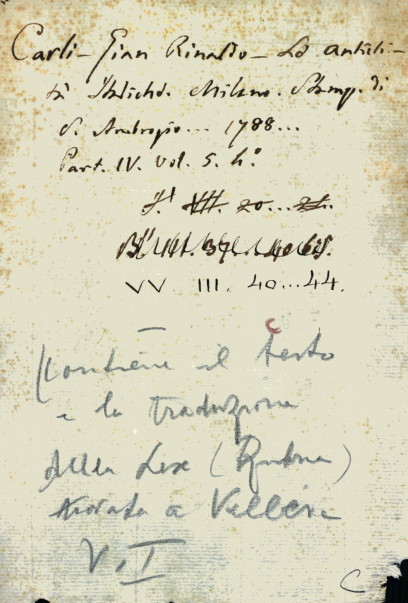 Carli – Gian Rinaldo – Le antichi-
tà Italiche. Milano. Stamp. di
S. Ambrogio... 1788...
Part. IV. Vol. 5. 4.º
VII. 20...
VV. III. 40...44.
Contiene il testo
e la traduzione
della Lex (Rubria)
trovata a Velleia
V. I
C